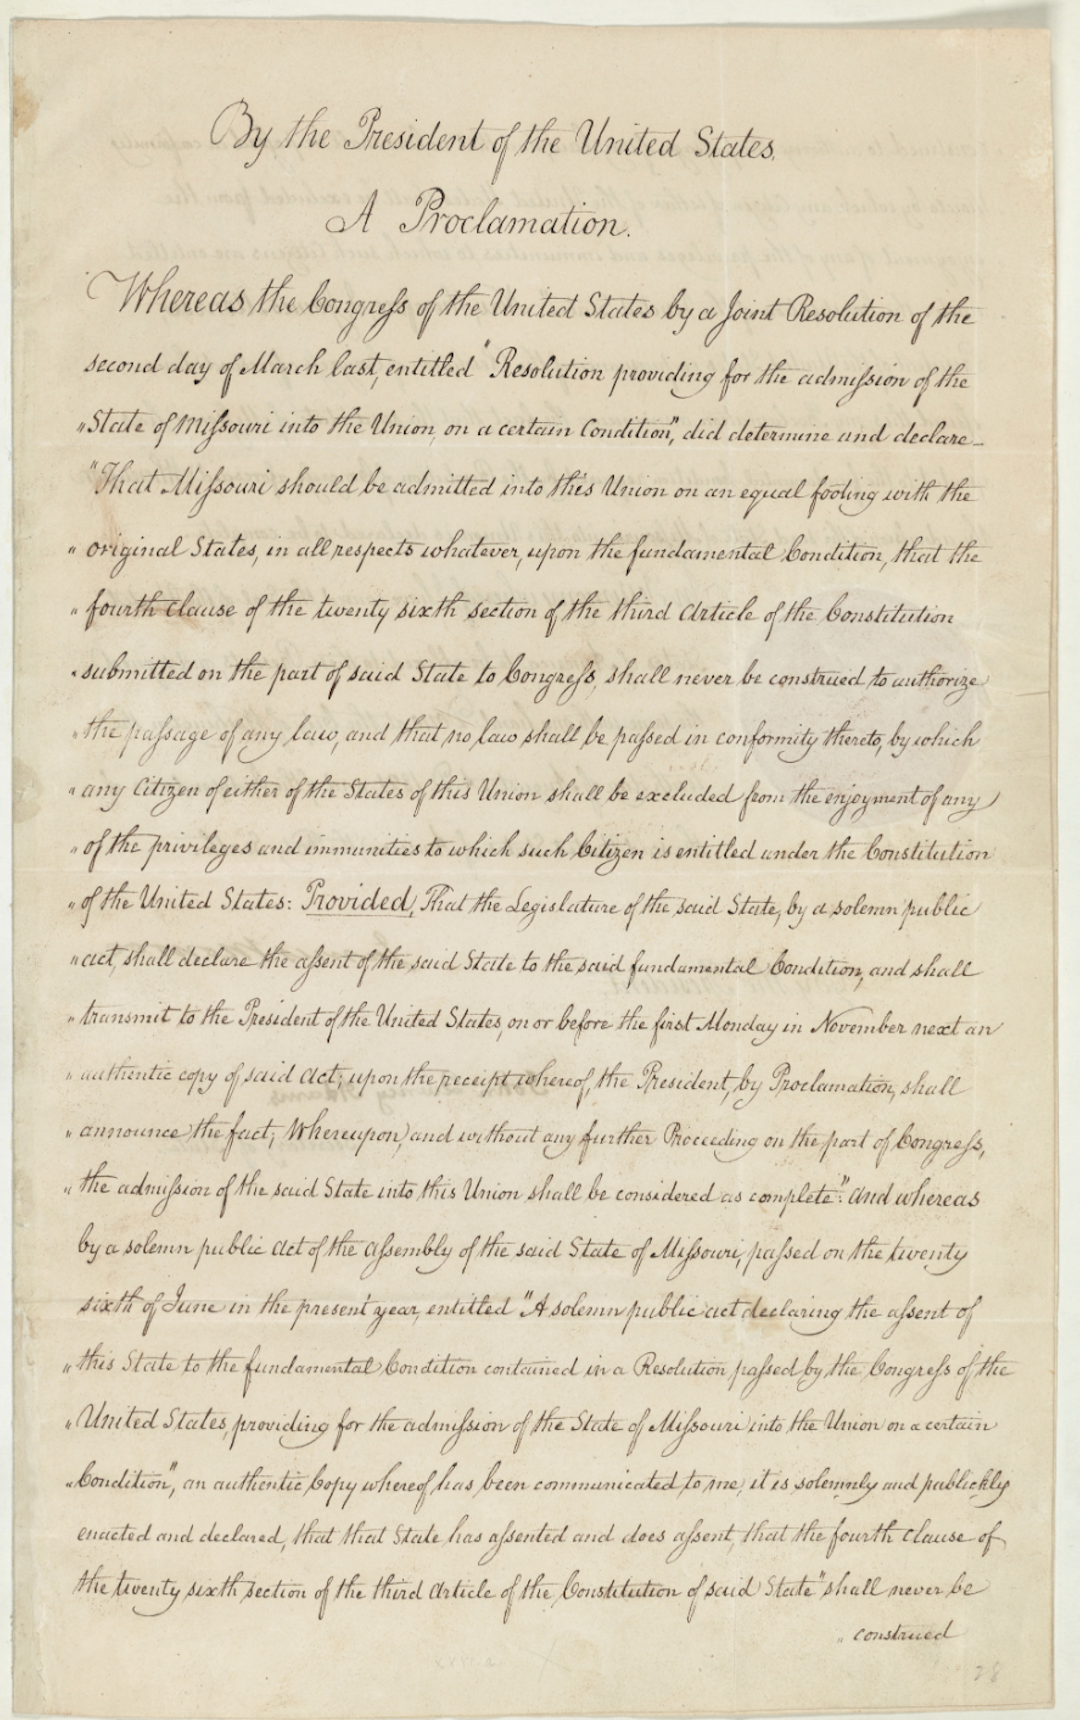 By the President of the United States.
A Proclamation.
Whereas the Congress of the United States by a Joint Resolution of the
second day of March last, entitled "Resolution providing for the admission of the
"State of Missouri into the Union, on a certain Condition", did determine and declare—
"That Missouri should be admitted into this Union on an equal footing with the
"original States, in all respects whatever, upon the fundamental Condition, that the
"fourth clause of the twenty sixth section of the third Article of the Constitution
"submitted on the part of said State to Congress, shall never be construed to authorize
"the passage of any law, and that no law shall be passed in conformity thereto, by which
"any Citizen of either of the States of this Union shall be excluded from the enjoyment of any
"of the privileges and immunities to which such Citizen is entitled under the Constitution
"of the United States: Provided, That the Legislature of the said State, by a solemn public
"act, shall declare the assent of the said State to the said fundamental Condition, and shall
"transmit to the President of the United States, on or before the first Monday in November next an
"authentic copy of said act; upon the receipt whereof, the President, by Proclamation, shall
"announce the fact; Whereupon, and without any further Proceeding on the part of Congress,
"the admission of the said State into this Union shall be considered as complete": And whereas
by a solemn public Act of the Assembly of the said State of Missouri, passed on the twenty
sixth of June in the present year, entitled "A solemn public act declaring the assent of
"this State to the fundamental Condition contained in a Resolution passed by the Congress of the
"United States, providing for the admission of the State of Missouri into the Union on a certain
"Condition", an authentic Copy whereof has been communicated to me, it is solemnly and publickly
enacted and declared, that that State has assented and does assent, that the fourth clause of
the twenty sixth section of the third Article of the Constitution of said State "shall never be
"construed
28